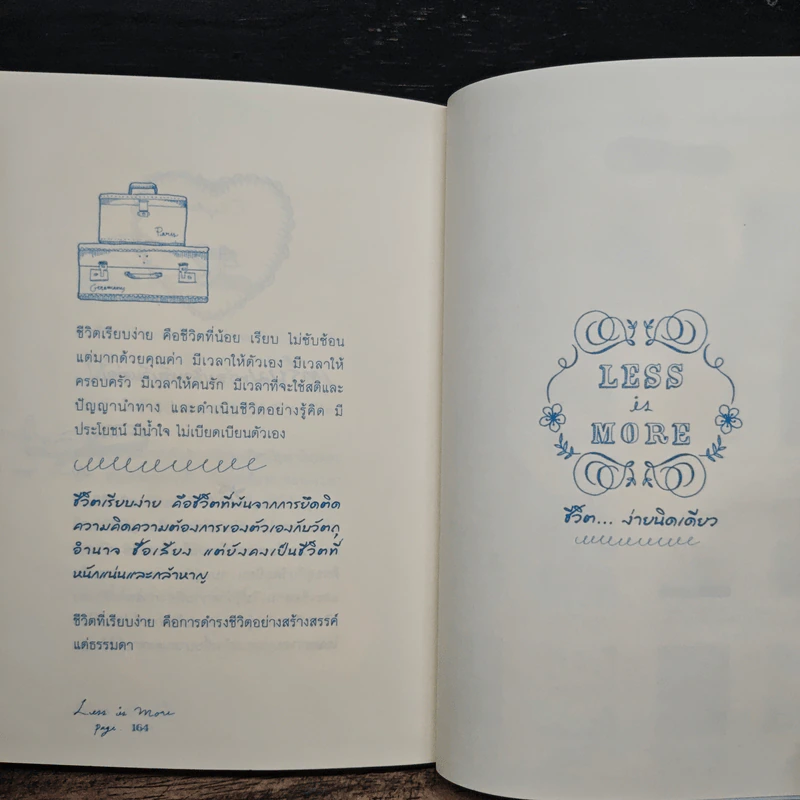 Paris
Germany
ชีวิตเรียบง่าย คือชีวิตที่น้อย เรียบ ไม่ซับซ้อน
แต่มากด้วยคุณค่า มีเวลาให้ตัวเอง มีเวลาให้
ครอบครัว มีเวลาให้คนรัก มีเวลาที่จะใช้สติและ
ปัญญานำทาง และดำเนินชีวิตอย่างรู้คิด มี
ประโยชน์ มีน้ำใจ ไม่เบียดเบียนตัวเอง
ชีวิตเรียบง่าย คือชีวิตที่พ้นจากการยึดติด
ความคิดความต้องการของตัวเองกับวัตถุ
อำนาจ ชื่อเสียง แต่ยังคงเป็นชีวิตที่
หนักแน่นและกล้าหาญ
ชีวิตที่เรียบง่าย คือการดำรงชีวิตอย่างสร้างสรรค์
แต่ธรรมดา
Less is More
page. 164
LESS
is
MORE
ชีวิต... ง่ายนิดเดียว